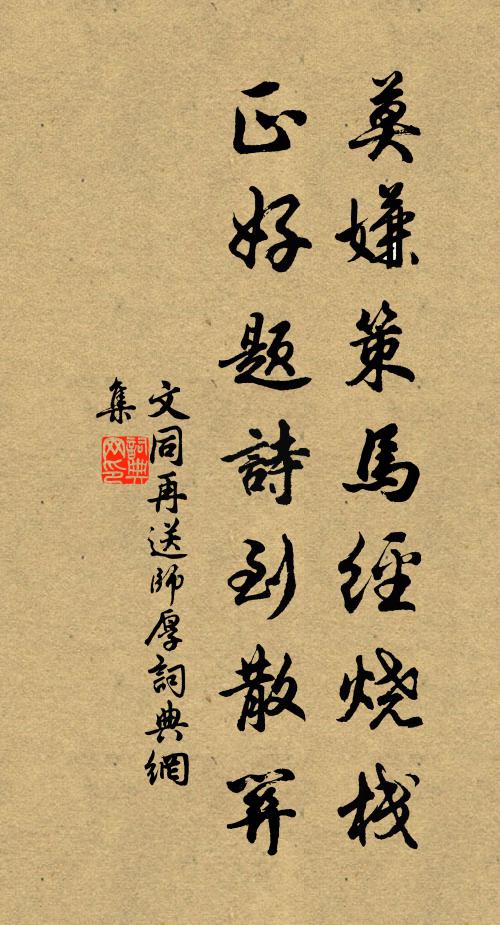 莫嫌策馬經燒棧
正好題詩到散關
文同再送師厚詞典網
集
詞典網印